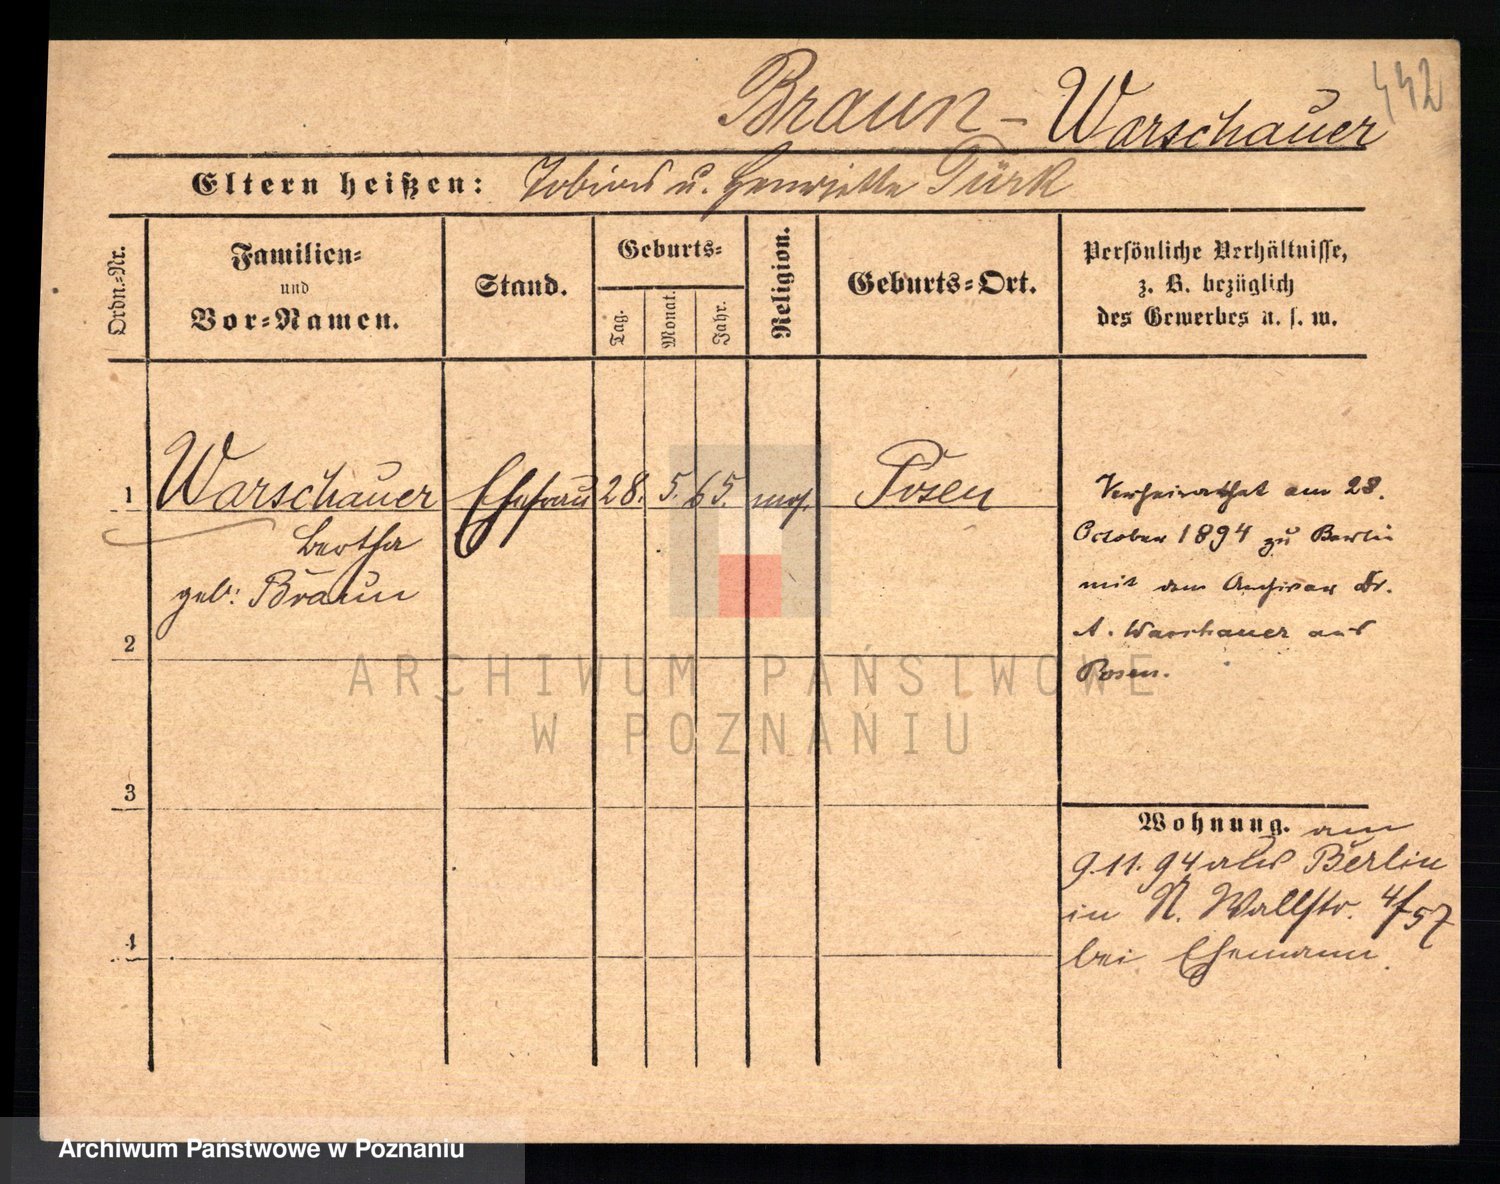 442
Braun - Warschauer
Eltern heißen: Tobias u. Henriette Türk
Ordn.-Nr.
Familien-
und
Vor-Namen.
Stand.
Geburts-
Tag.
Monat.
Jahr.
Religion.
Geburts-Ort.
Persönliche Verhältnisse,
z. B. bezüglich
des Gewerbes u. s. w.
1 Warschauer Ehefrau 28. 5. 65. mos. Posen
Bertha
geb: Braun
Verheirathet am 28.
October 1894 zu Berlin
mit dem Archivar Dr.
A. Warschauer aus
Posen.
2
3
4
Wohnung. am
9.11.94 aus Berlin
in N. Wallstr. 4/57
bei Ehemann.
ARCHIWUM PAŃSTWOWE
W POZNANIU
Archiwum Państwowe w Poznaniu